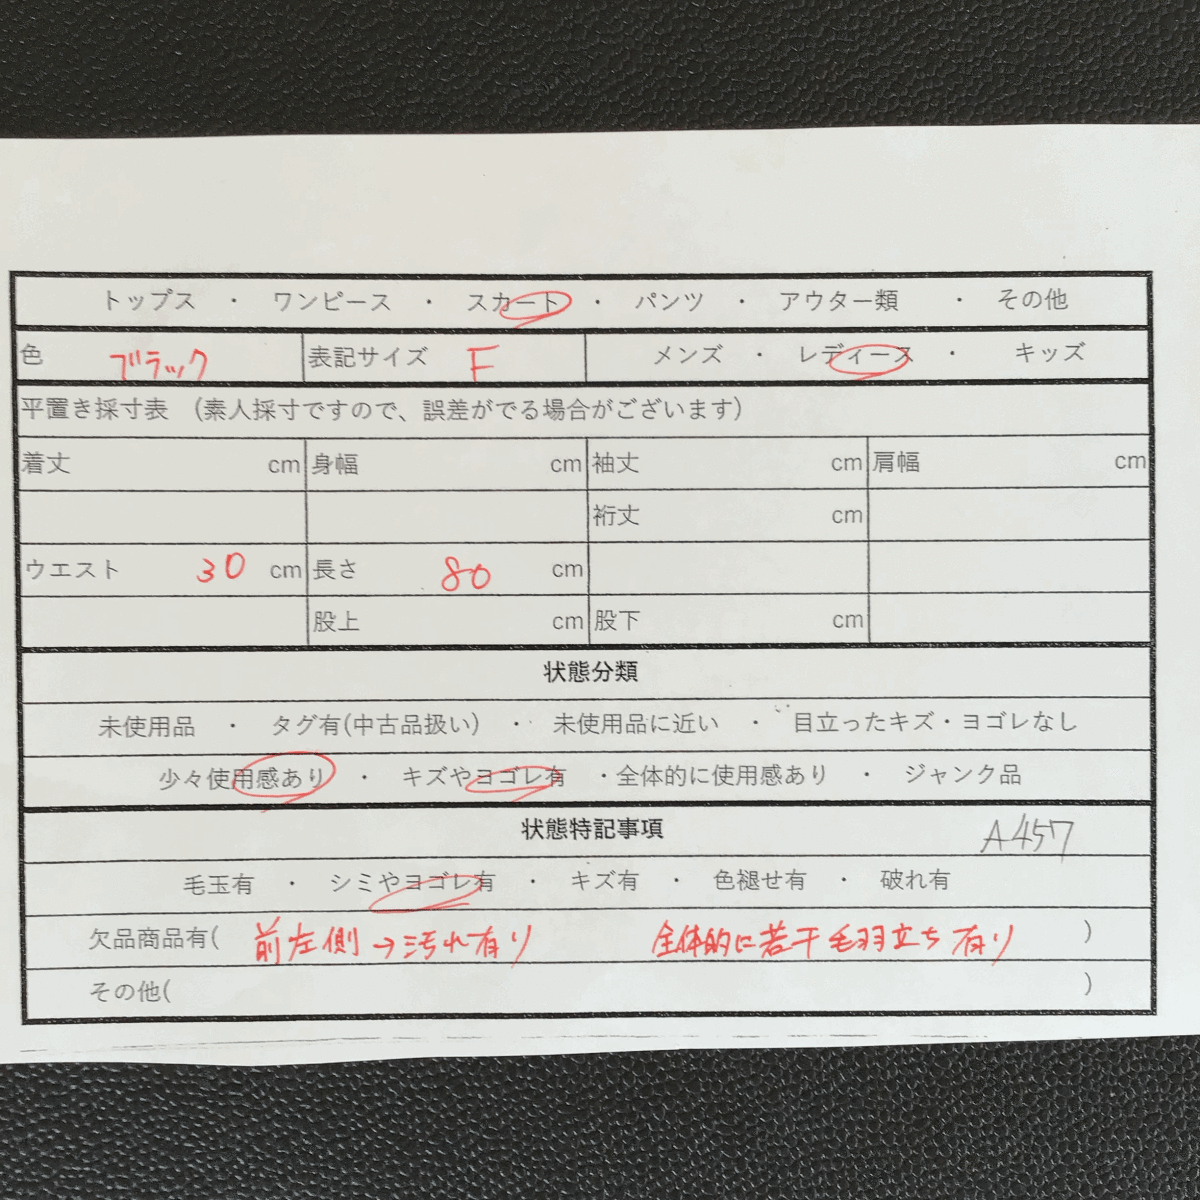 トップス ・ ワンピース ・ スカート ・ パンツ ・ アウター類 ・ その他
色 ブラック 表記サイズ F メンズ ・ レディース ・ キッズ
平置き採寸表 (素人採寸ですので、誤差がでる場合がございます)
着丈 cm 身幅 cm 袖丈 cm 肩幅 cm
裄丈 cm
ウエスト 30 cm 長さ 80 cm
股上 cm 股下 cm
状態分類
未使用品 ・ タグ有(中古品扱い) ・ 未使用品に近い ・ 目立ったキズ・ヨゴレなし
少々使用感あり ・ キズやヨゴレ有 ・全体的に使用感あり ・ ジャンク品
状態特記事項 A457
毛玉有 ・ シミやヨゴレ有 ・ キズ有 ・ 色褪せ有 ・ 破れ有
欠品商品有( 前左側→汚れ有り 全体的に若干毛羽立ち有り )
その他( )